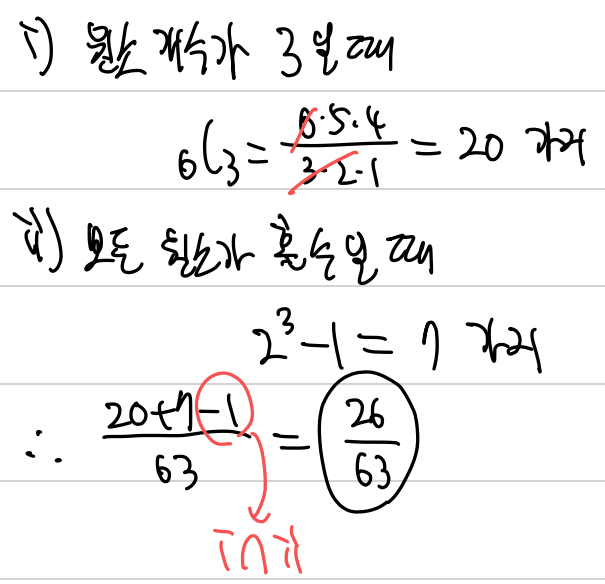 i) 원소 개수가 3일 때
₆C₃ = 6·5·4 / 3·2·1 = 20 가지
ii) 모든 원소가 홀수일 때
2³-1 = 7 가지
∴ 20+7-1 / 63 = 26 / 63
i∩ii